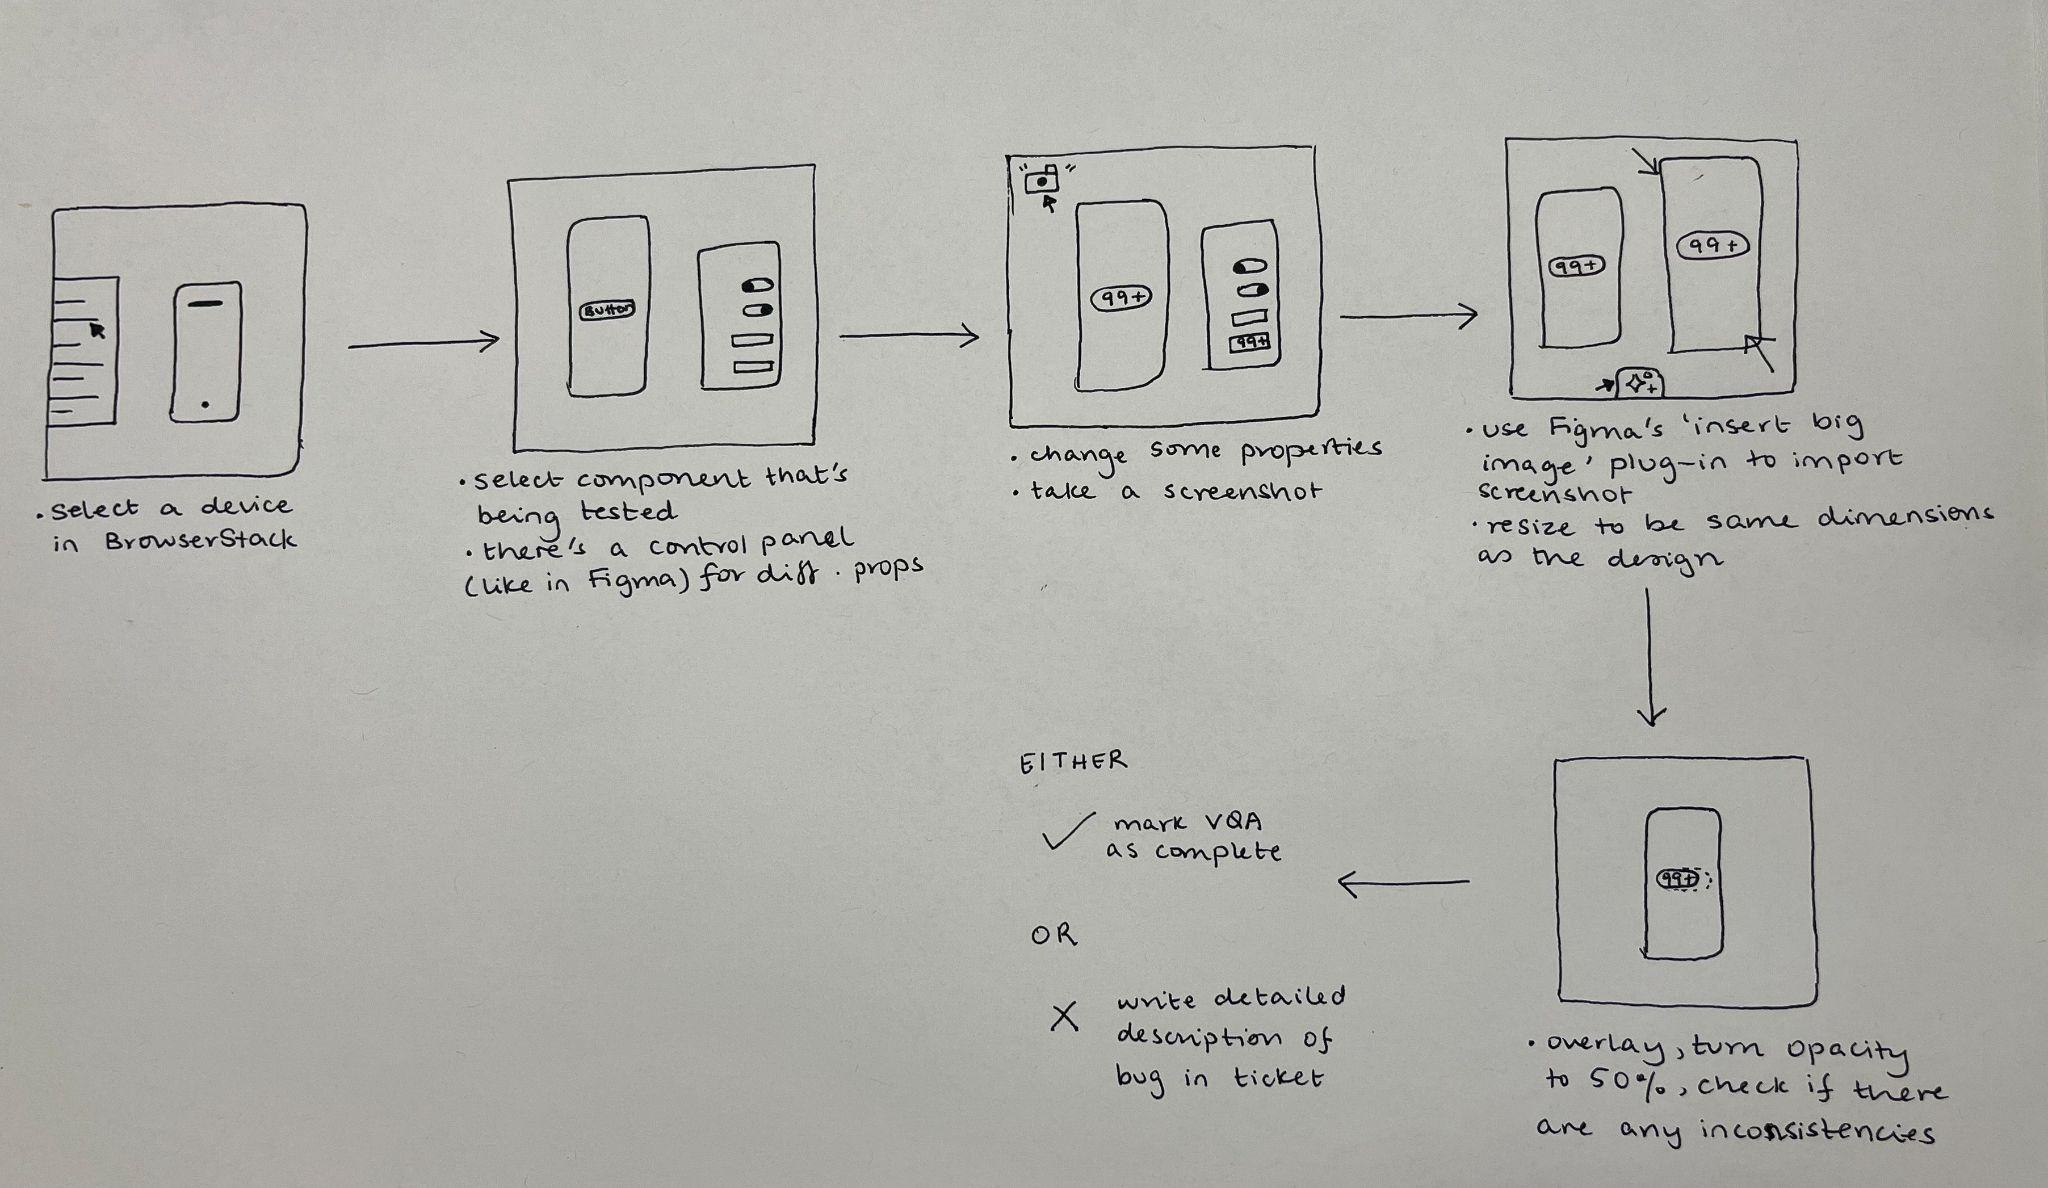 • select a device
in BrowserStack
Button
• select component that's
being tested
• there's a control panel
(like in Figma) for diff. props
99+
99+
• change some properties
• take a screenshot
99+
99+
• use Figma's 'insert big
image' plug-in to import
screenshot
• resize to be same dimensions
as the design
99+
• overlay, turn opacity
to 50%, check if there
are any inconsistencies
EITHER
✓ mark VQA
as complete
OR
X write detailed
description of
bug in ticket